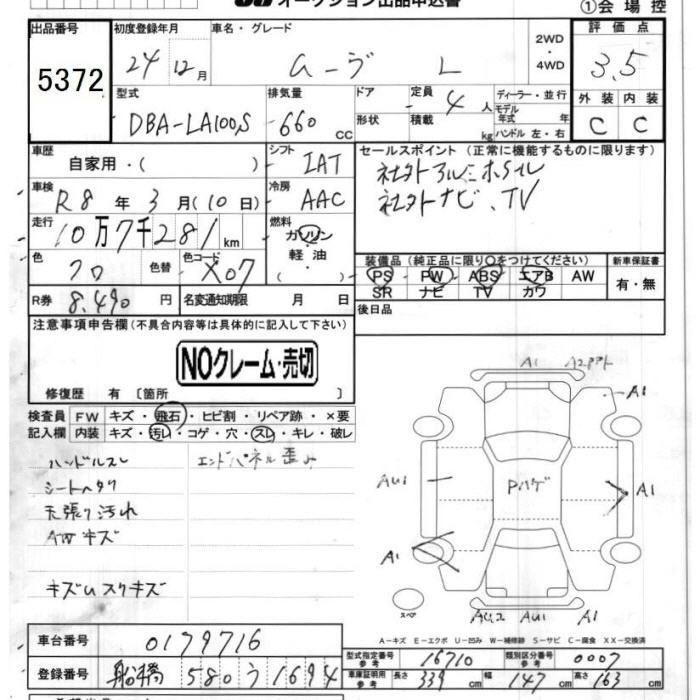 オークション出品申込書 ①会場控
出品番号 初度登録年月 車名・グレード 2WD・4WD 評価点
5372 24 12月 ムーヴ L 3.5
型式 排気量 ドア 定員 ディーラー・並行 外装 内装
DBA-LA100S 660 CC 形状 4人 積載 kg モデル年式 年 ハンドル 左・右 C C
車歴 自家用・( ) シフト IAT セールスポイント (正常に機能するものに限ります)
車検 R8年3月(10日) 冷房 AAC 社外アルミホイル
社外ナビ、TV
走行 10万7千281km 燃料 ガソリン・軽油・( )
装備品 (純正品に限り〇をつけてください) 新車保証書
色 クロ 色替 色コード X07 PS PW ABS エアB AW 有・無
SR ナビ TV カワ
R券 8,490円 名変通知期限 月 日
後日品
注意事項申告欄(不具合内容等は具体的に記入して下さい)
NOクレーム・売切
修復歴 有 〔箇所 〕
検査員 FW キズ・飛石・ヒビ割・リペア跡・×要
記入欄 内装 キズ・汚レ・コゲ・穴・スレ・キレ・破レ
ハンドルスレ エンドパネル歪み
シートヘタリ
天張り汚れ
AWキズ
キズUスリキズ
A1 A2
A1
AU1 Pハゲ A1
A1
スペア AU2 AU1 A1
A-キズ E-エクボ U-凹み W-補修跡 S-サビ C-腐食 XX-交換済
車台番号 0179716
登録番号 船橋 580 う 1694
型式指定番号 参考 16710 類別区分番号 参考 0007
車庫証明用 参考 長さ 339cm 幅 147cm 高さ 163cm